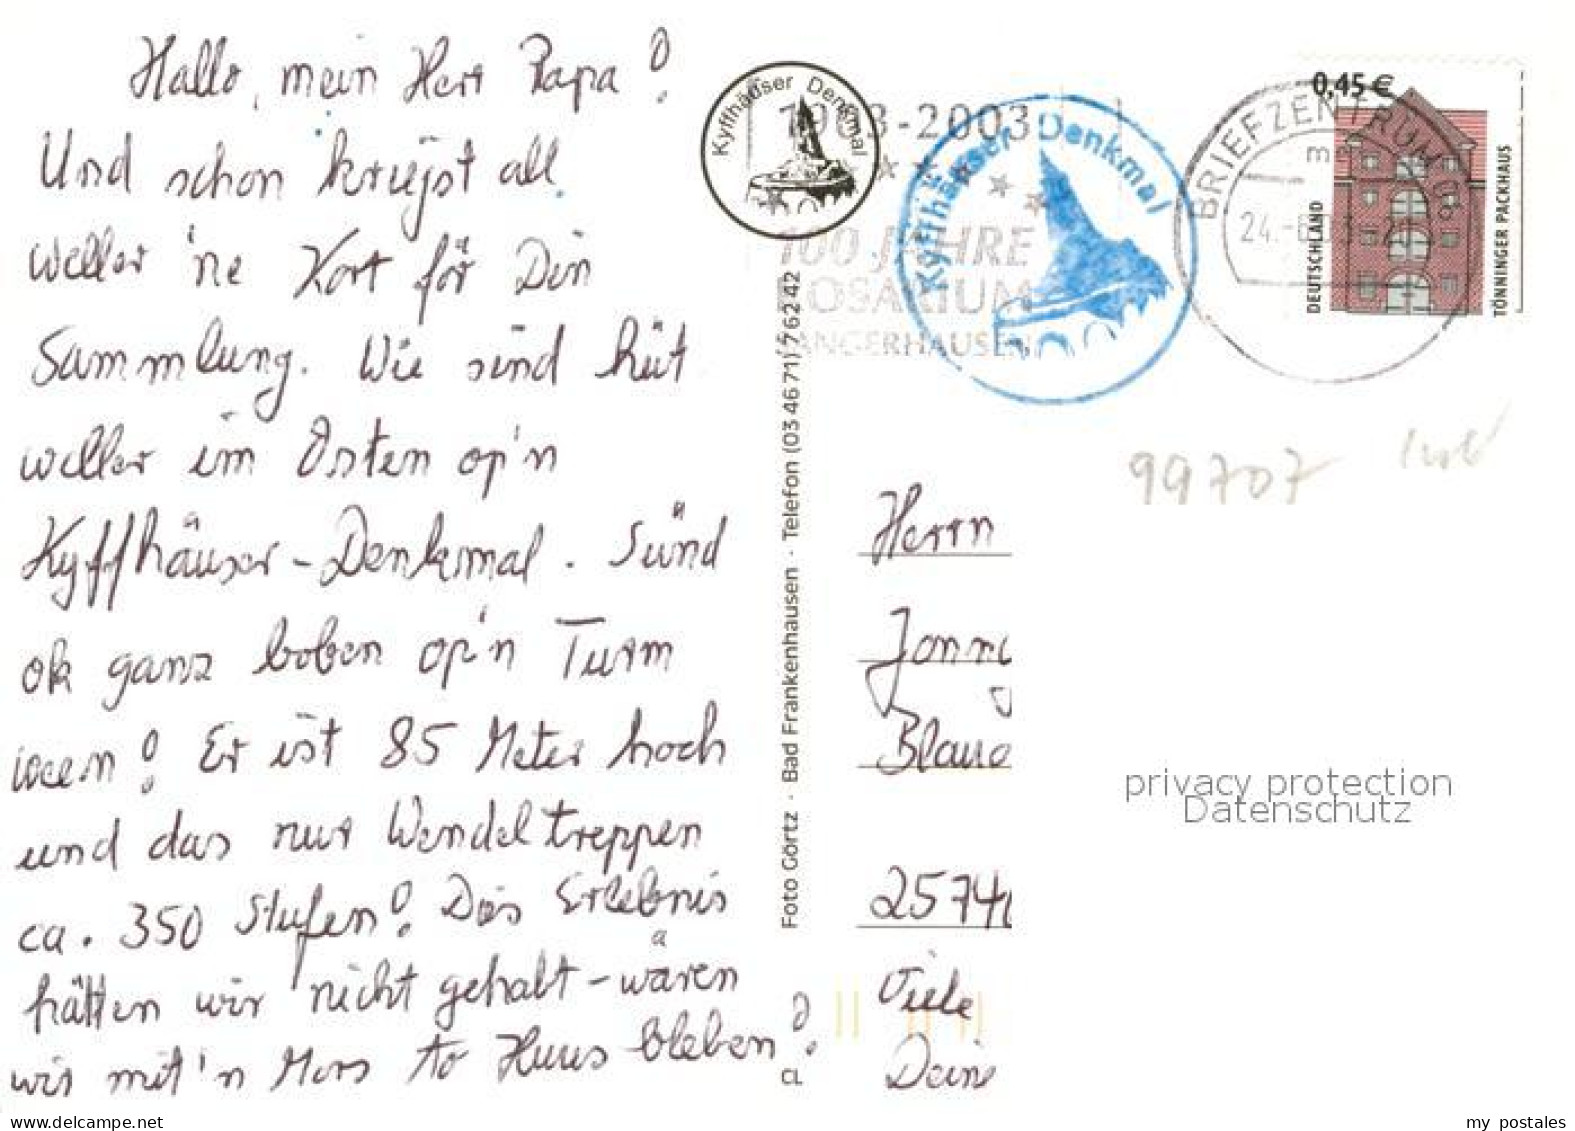 Hallo, mein Herr Papa!
Und schon kriegst all
weller 'ne Kort för Din
Sammlung. Wie sünd hüt
weller im Osten op'n
Kyffhäuser-Denkmal. Sünd
ok ganz boben op'n Turm
ween! Er ist 85 Meter hoch
und das nur Wendeltreppen
ca. 350 Stufen! Das Erlebnis
hätten wir nicht gehabt - wären
wir mit'n Mors to Huus bleben!
Kyffhäuser Denkmal
1903-2003
100 JAHRE
ROSARIUM
SANGERHAUSEN
Kyffhäuser Denkmal
BRIEFZENTRUM
24.-6
0,45 €
DEUTSCHLAND
TÖNNINGER PACKHAUS
Foto Görtz · Bad Frankenhausen · Telefon (03 46 71) 7 62 42
CL
99707
Herrn
Blau
2574
Viele
Deine
privacy protection
Datenschutz
www.delcampe.net
my_postales